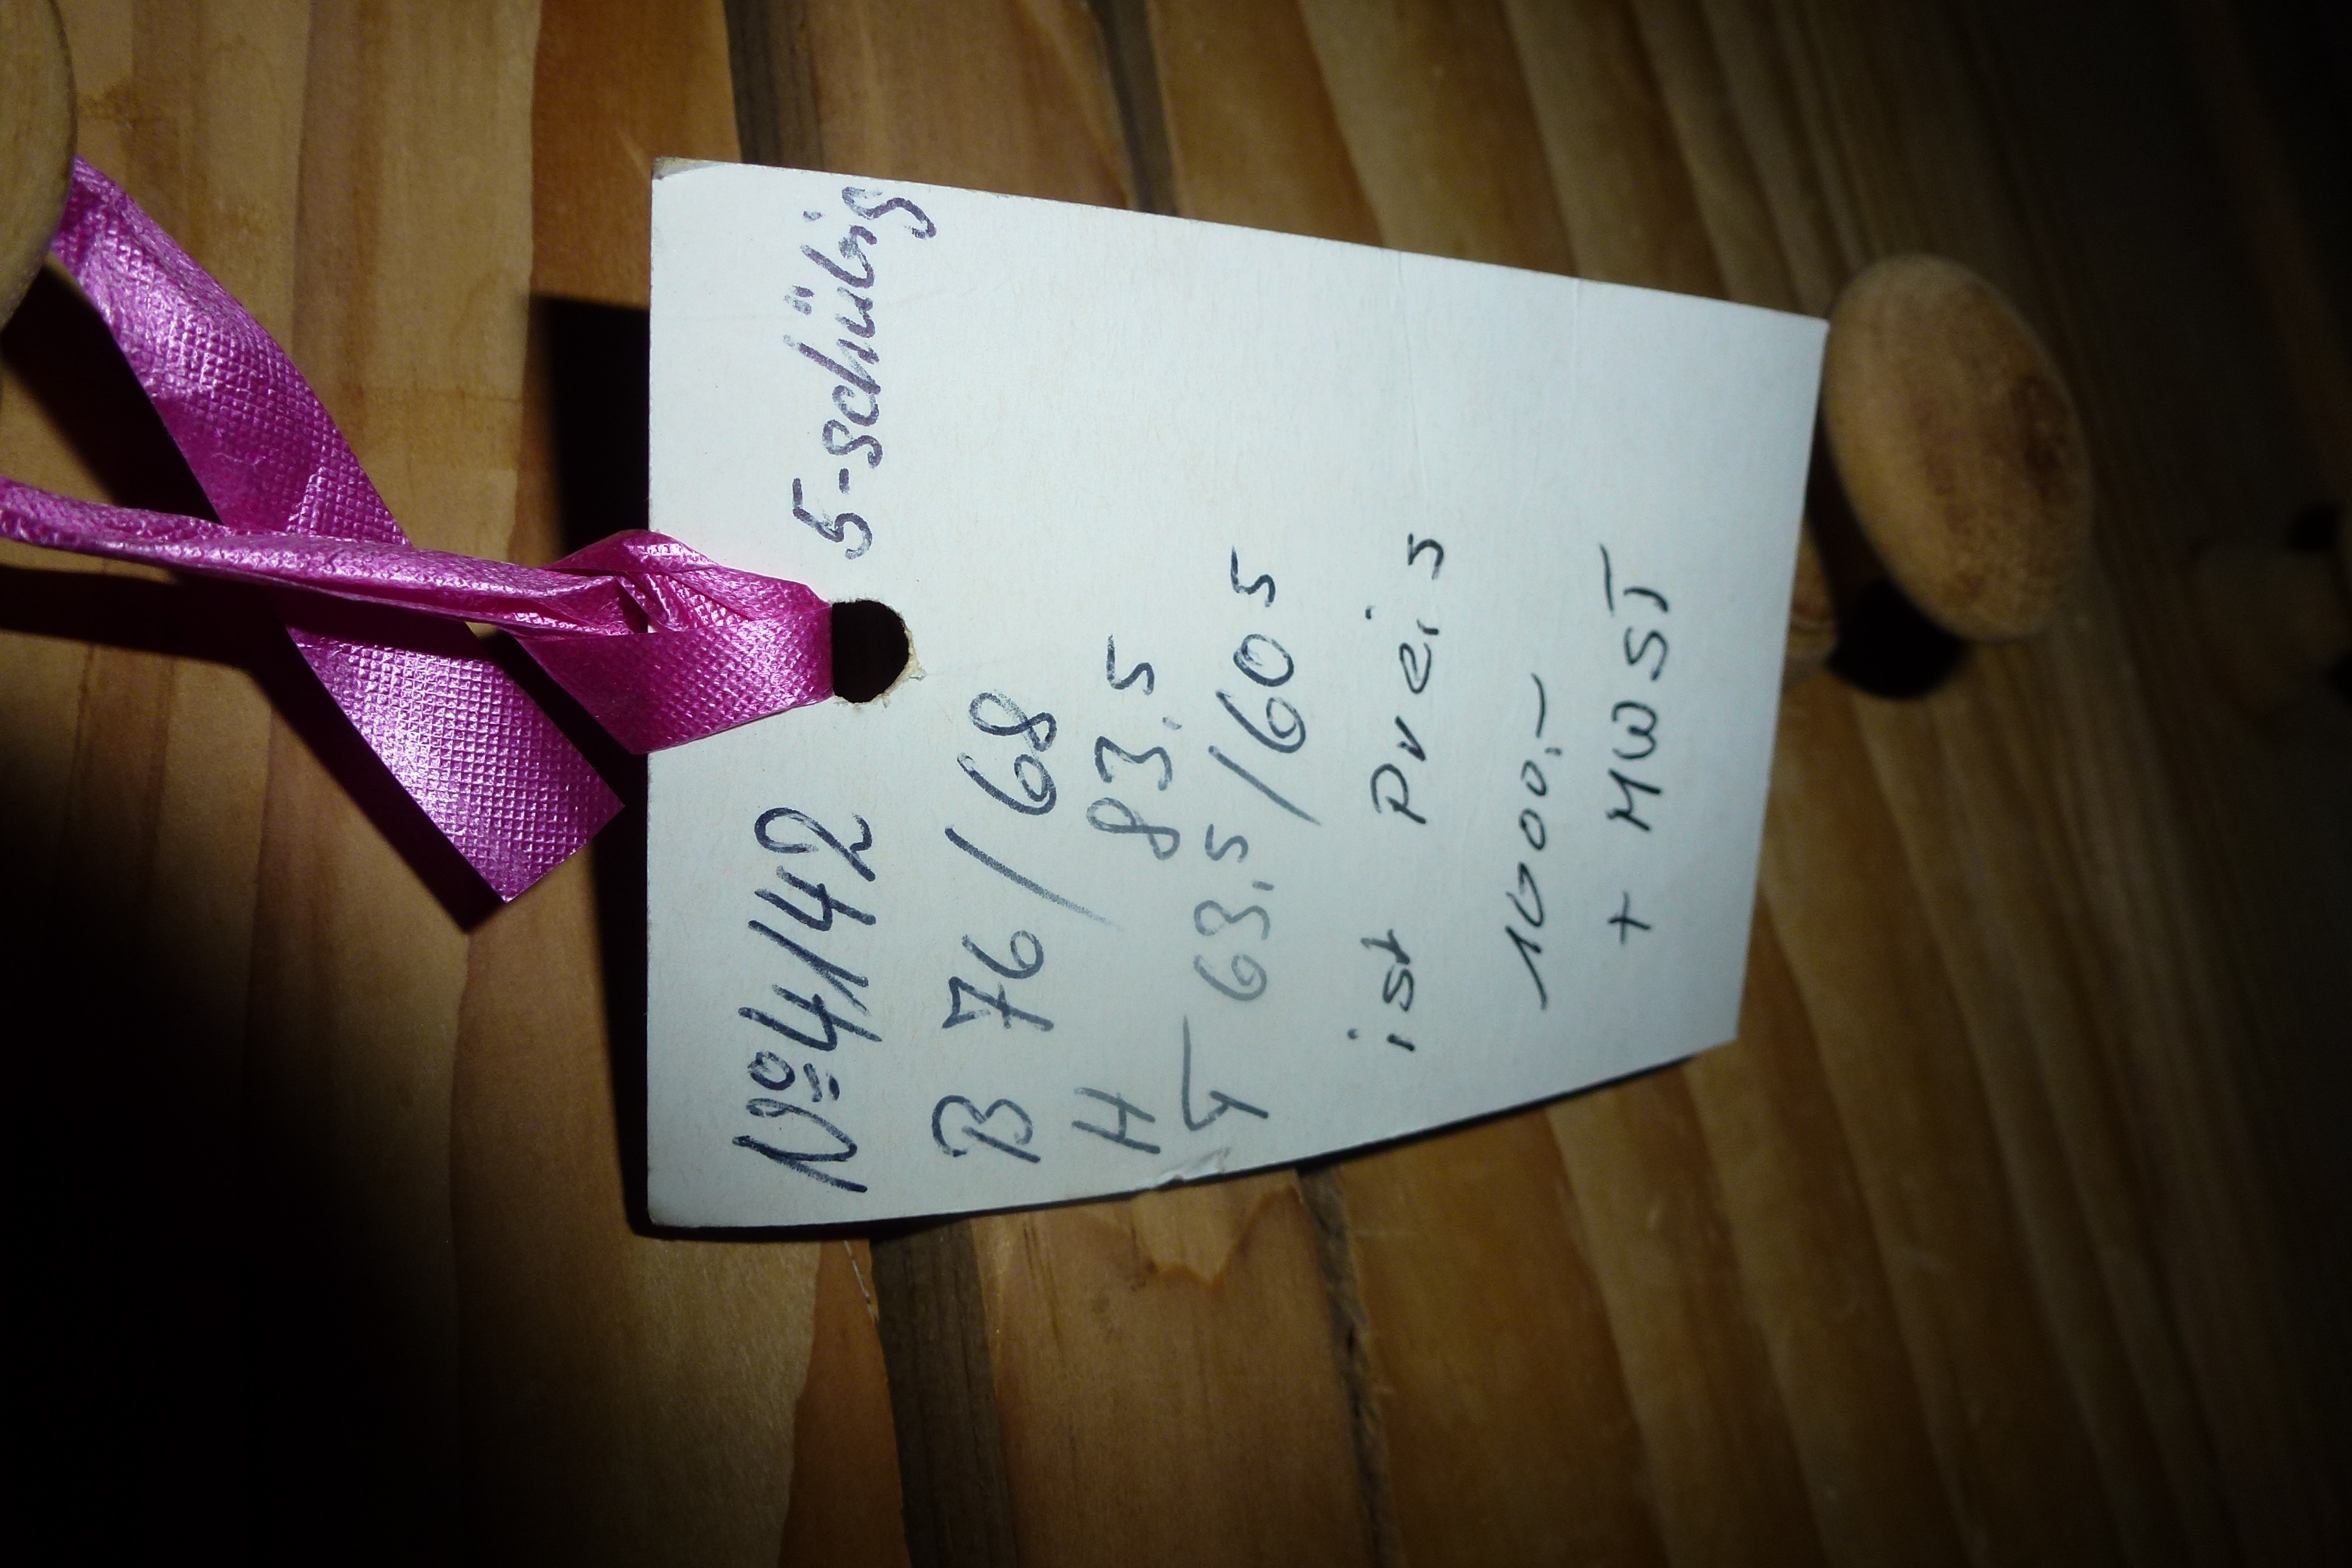 Nº 4/142 5-schübig
B 76/68
H 83.5
T 63.5/60 5
ist Preis
1600.-
+ MWST